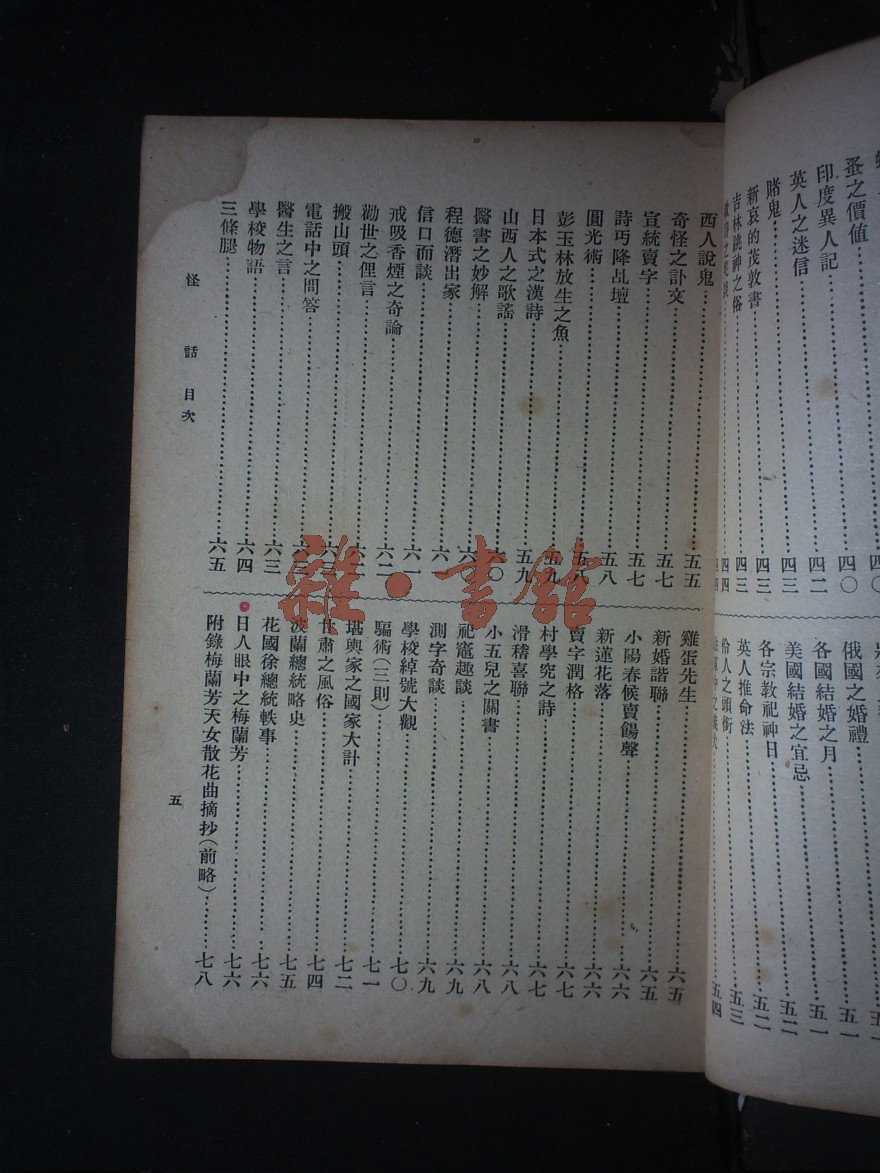 蚤之價值⋯⋯四〇
印度異人記⋯⋯四二
英人之迷信⋯⋯四三
賭鬼⋯⋯四三
新哀的茂敦書⋯⋯四三
吉林跳神之俗⋯⋯四四
俄國之婚禮⋯⋯五一
各國結婚之月⋯⋯五一
美國結婚之宜忌⋯⋯五二
各宗教祀神日⋯⋯五二
英人推命法⋯⋯五三
伶人之頭銜⋯⋯五四
西人說鬼⋯⋯五五
奇怪之訃文⋯⋯五七
宣統賣字⋯⋯五七
詩丐降乩壇⋯⋯五八
圓光術⋯⋯五八
彭玉林放生之魚⋯⋯五九
日本式之漢詩⋯⋯五九
山西人之歌謠⋯⋯六〇
醫書之妙解⋯⋯六〇
程德潛出家⋯⋯六〇
信口而談⋯⋯六一
戒吸香煙之奇論⋯⋯六二
勸世之俚言⋯⋯六二
搬山頭⋯⋯六三
電話中之問答⋯⋯六三
醫生之言⋯⋯六三
學校物語⋯⋯六四
三條腿⋯⋯六五
雞蛋先生⋯⋯六五
新婚諧聯⋯⋯六五
小陽春候賣餳聲⋯⋯六六
新蓮花落⋯⋯六六
賣字潤格⋯⋯六七
村學究之詩⋯⋯六七
滑稽喜聯⋯⋯六八
小五兒之關書⋯⋯六八
祀竈趣談⋯⋯六九
測字奇談⋯⋯六九
學校綽號大觀⋯⋯七〇
騙術(三則)⋯⋯七一
堪輿家之國家大計⋯⋯七二
甘肅之風俗⋯⋯七四
波蘭總統略史⋯⋯七五
花國徐總統軼事⋯⋯七六
日人眼中之梅蘭芳⋯⋯七六
附錄梅蘭芳天女散花曲摘抄(前略)⋯⋯七八
怪話目次
五
雜·書館